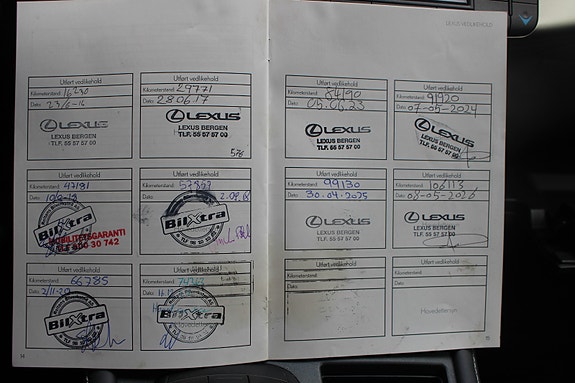 LEXUS VEDLIKEHOLD
Utført vedlikehold
Kilometerstand: 16230
Dato: 23/6-16
LEXUS
LEXUS BERGEN
TLF. 55 57 57 00
Utført vedlikehold
Kilometerstand: 29771
Dato: 28.06.17
LEXUS
LEXUS BERGEN
TLF. 55 57 57 00
Utført vedlikehold
Kilometerstand: 47181
Dato:
BilXtra
MOBILITETSGARANTI
Utført vedlikehold
Kilometerstand: 57857
Dato:
BilXtra
Utført vedlikehold
Kilometerstand: 66785
Dato:
BilXtra
Utført vedlikehold
Kilometerstand:
Dato:
BilXtra
14
Utført vedlikehold
Kilometerstand: 84190
Dato: 05.06.23
LEXUS
LEXUS BERGEN
TLF. 55 57 57 00
Utført vedlikehold
Kilometerstand: 91920
Dato: 07-05-2024
LEXUS
LEXUS BERGEN
TLF. 55 57 57 00
Utført vedlikehold
Kilometerstand: 99130
Dato: 30.04.2025
LEXUS
LEXUS BERGEN
TLF. 55 57 57 00
Utført vedlikehold
Kilometerstand: 106113
Dato: 08-05-2026
LEXUS
LEXUS BERGEN
TLF. 55 57 57 00
Utført vedlikehold
Kilometerstand:
Dato:
Utført vedlikehold
Kilometerstand:
Dato:
Hovedettersyn
15